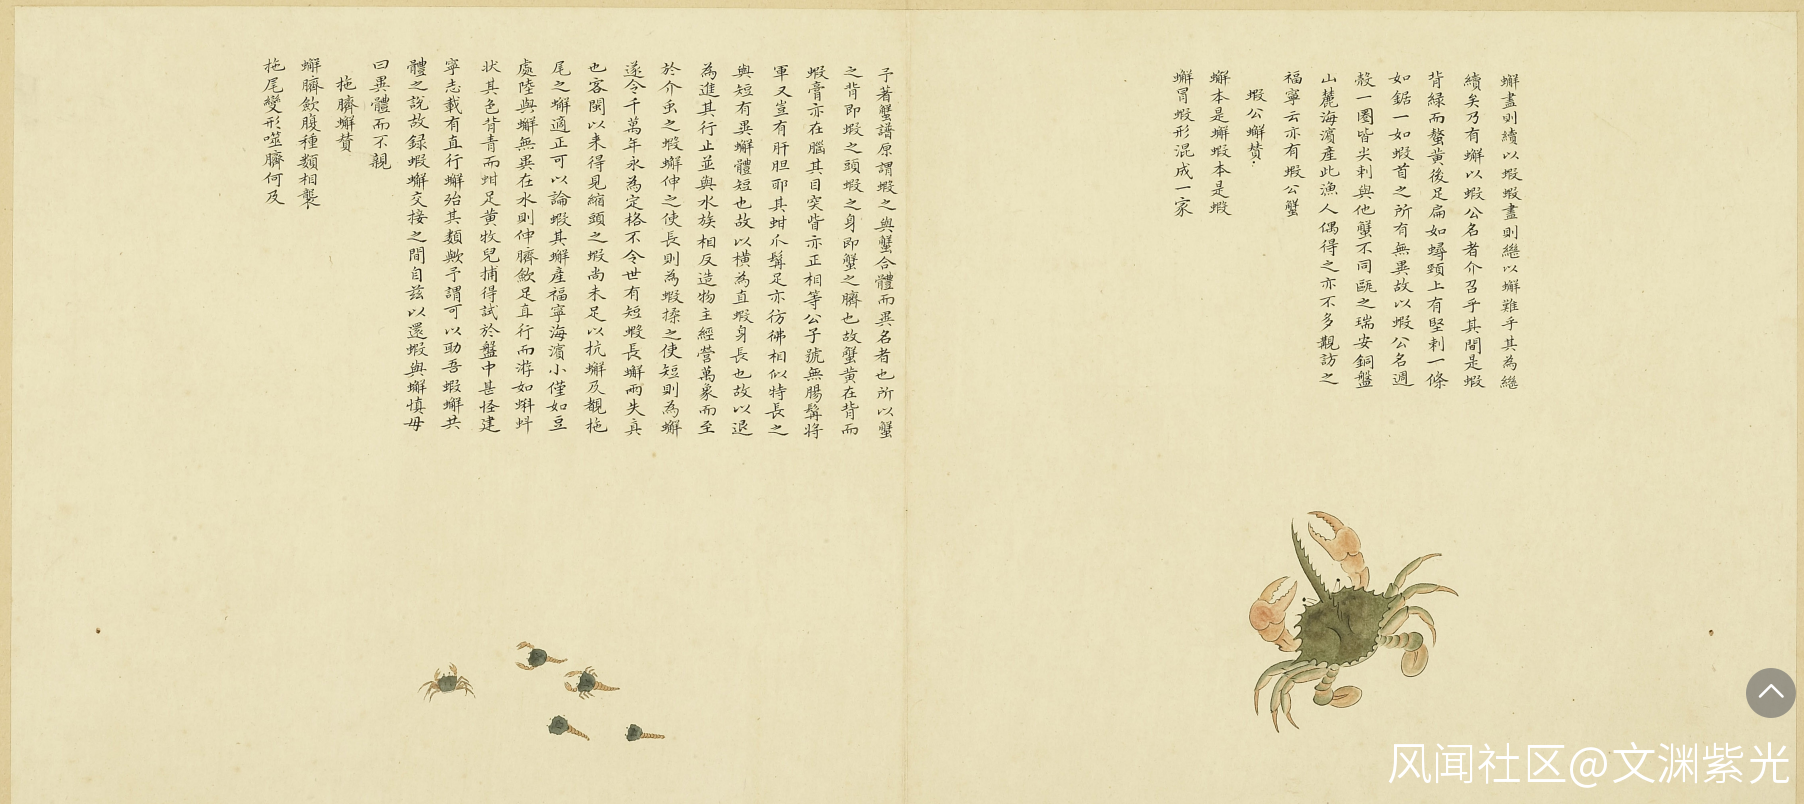 蠏盡則續以蝦蝦盡則繼以蠏難乎其為繼
續矣乃有蠏以蝦公名者介召乎其間是蝦
背綠而螯黃後足扁如蟳頸上有堅刺一條
如鋸一如蝦首之所有無異故以蝦公名週
殼一圈皆尖刺與他蟹不同甌之瑞安銅盤
山麓海濱產此漁人偶得之亦不多覯訪之
福寧云亦有蝦公蟹
蝦公蠏贊
蠏本是蠏蝦本是蝦
蠏冒蝦形混成一家
予著蟹譜原謂蝦之與蟹合體而異名者也所以蟹
之背即蝦之頭蝦之身即蟹之臍也故蟹黃在背而
蝦膏亦在腦其目突皆亦正相等公子號無腸髯將
軍又豈有肝胆耶其蚶爪髯足亦彷彿相似特長之
與短有異蠏體短也故以橫為直蝦身長也故以退
為進其行止並與水族相反造物主經營萬象而至
於介虫之蝦蠏伸之使長則為蝦揉之使短則為蠏
遂令千萬年永為定格不令世有短蝦長蠏兩失真
也客閩以來得見縮頭之蝦尚未足以抗蠏及覩拖
尾之蠏適正可以論蝦其蠏產福寧海濱小僅如豆
處陸與蠏無異在水則伸臍斂足直行而游如蝌蚪
狀其色背青而蚶足黃牧兒捕得試於盤中甚怪建
寧志載有直行蠏殆其類歟予謂可以助吾蝦蠏共
體之說故録蝦蠏交接之間自茲以還蝦與蠏慎毋
曰異體而不親
拖臍蠏贊
蠏臍斂腹種類相襲
拖尾變形噬臍何及
风闻社区@文渊紫光